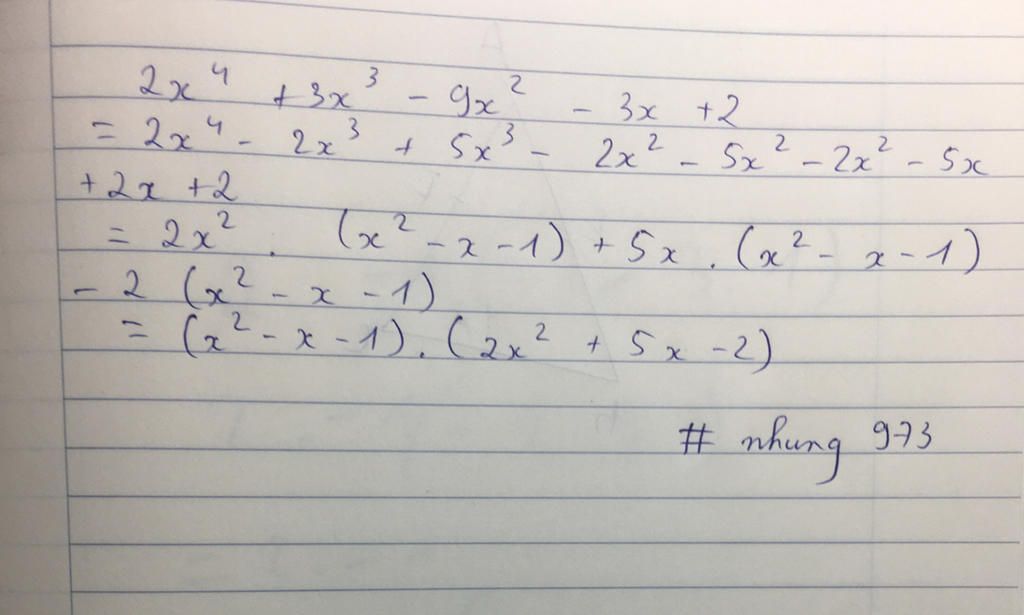 2x⁴ + 3x³ - 9x² - 3x + 2
= 2x⁴ - 2x³ + 5x³ - 2x² - 5x² - 2x² - 5x
+ 2x + 2
= 2x² . (x² - x - 1) + 5x . (x² - x - 1)
- 2 (x² - x - 1)
= (x² - x - 1) . (2x² + 5x - 2)
# nhung 973